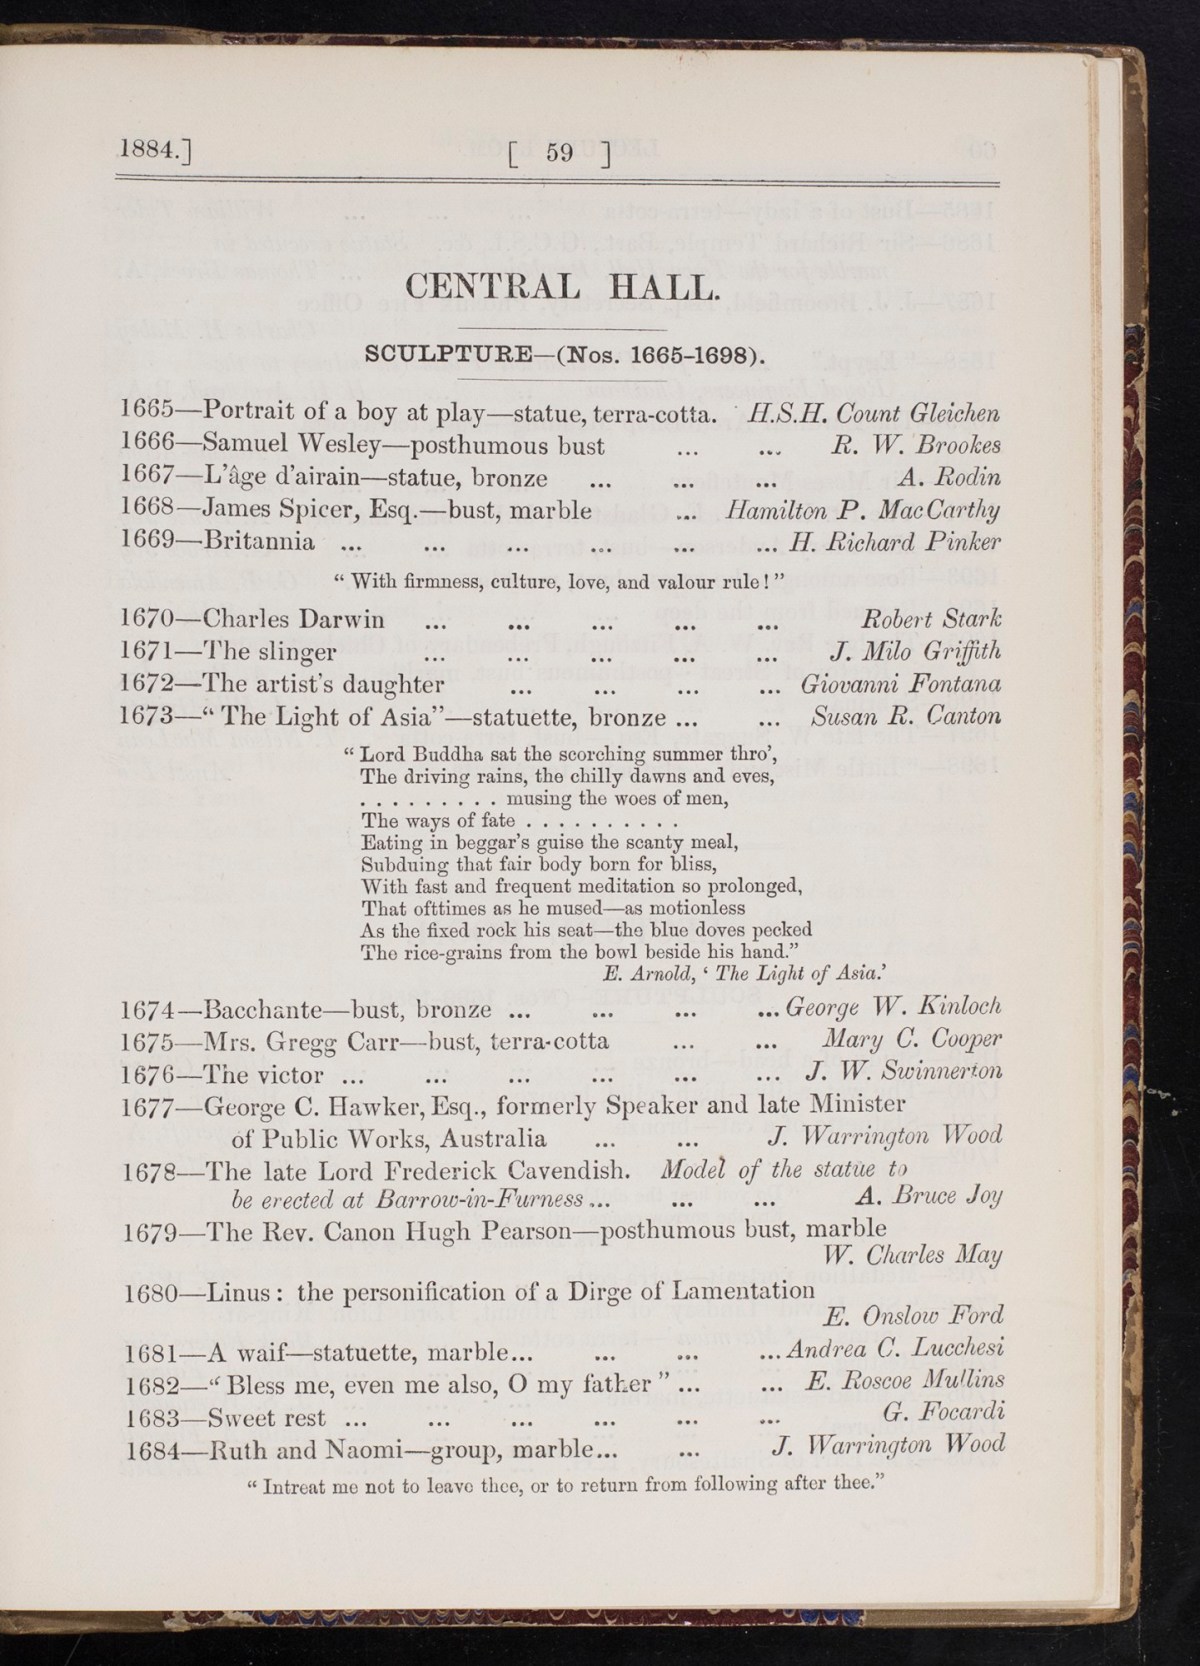 1884.] [ 59 ]
CENTRAL HALL.
SCULPTURE—(Nos. 1665-1698).
1665—Portrait of a boy at play—statue, terra-cotta. H.S.H. Count Gleichen
1666—Samuel Wesley—posthumous bust ... ... R. W. Brookes
1667—L'âge d'airain—statue, bronze ... ... ... A. Rodin
1668—James Spicer, Esq.—bust, marble ... Hamilton P. MacCarthy
1669—Britannia ... ... ... ... ... ... H. Richard Pinker
" With firmness, culture, love, and valour rule! "
1670—Charles Darwin ... ... ... ... ... Robert Stark
1671—The slinger ... ... ... ... ... J. Milo Griffith
1672—The artist's daughter ... ... ... ... Giovanni Fontana
1673—" The Light of Asia"—statuette, bronze ... ... Susan R. Canton
" Lord Buddha sat the scorching summer thro',
The driving rains, the chilly dawns and eves,
. . . . . . . . . musing the woes of men,
The ways of fate . . . . . . . . . .
Eating in beggar's guise the scanty meal,
Subduing that fair body born for bliss,
With fast and frequent meditation so prolonged,
That ofttimes as he mused—as motionless
As the fixed rock his seat—the blue doves pecked
The rice-grains from the bowl beside his hand."
E. Arnold, ' The Light of Asia.'
1674—Bacchante—bust, bronze ... ... ... ... George W. Kinloch
1675—Mrs. Gregg Carr—bust, terra-cotta ... ... Mary C. Cooper
1676—The victor ... ... ... ... ... ... J. W. Swinnerton
1677—George C. Hawker, Esq., formerly Speaker and late Minister
of Public Works, Australia ... ... J. Warrington Wood
1678—The late Lord Frederick Cavendish. Model of the statue to
be erected at Barrow-in-Furness ... ... ... A. Bruce Joy
1679—The Rev. Canon Hugh Pearson—posthumous bust, marble
W. Charles May
1680—Linus : the personification of a Dirge of Lamentation
E. Onslow Ford
1681—A waif—statuette, marble... ... ... ... Andrea C. Lucchesi
1682—" Bless me, even me also, O my father " ... ... E. Roscoe Mullins
1683—Sweet rest ... ... ... ... ... ... G. Focardi
1684—Ruth and Naomi—group, marble... ... J. Warrington Wood
" Intreat me not to leave thee, or to return from following after thee."